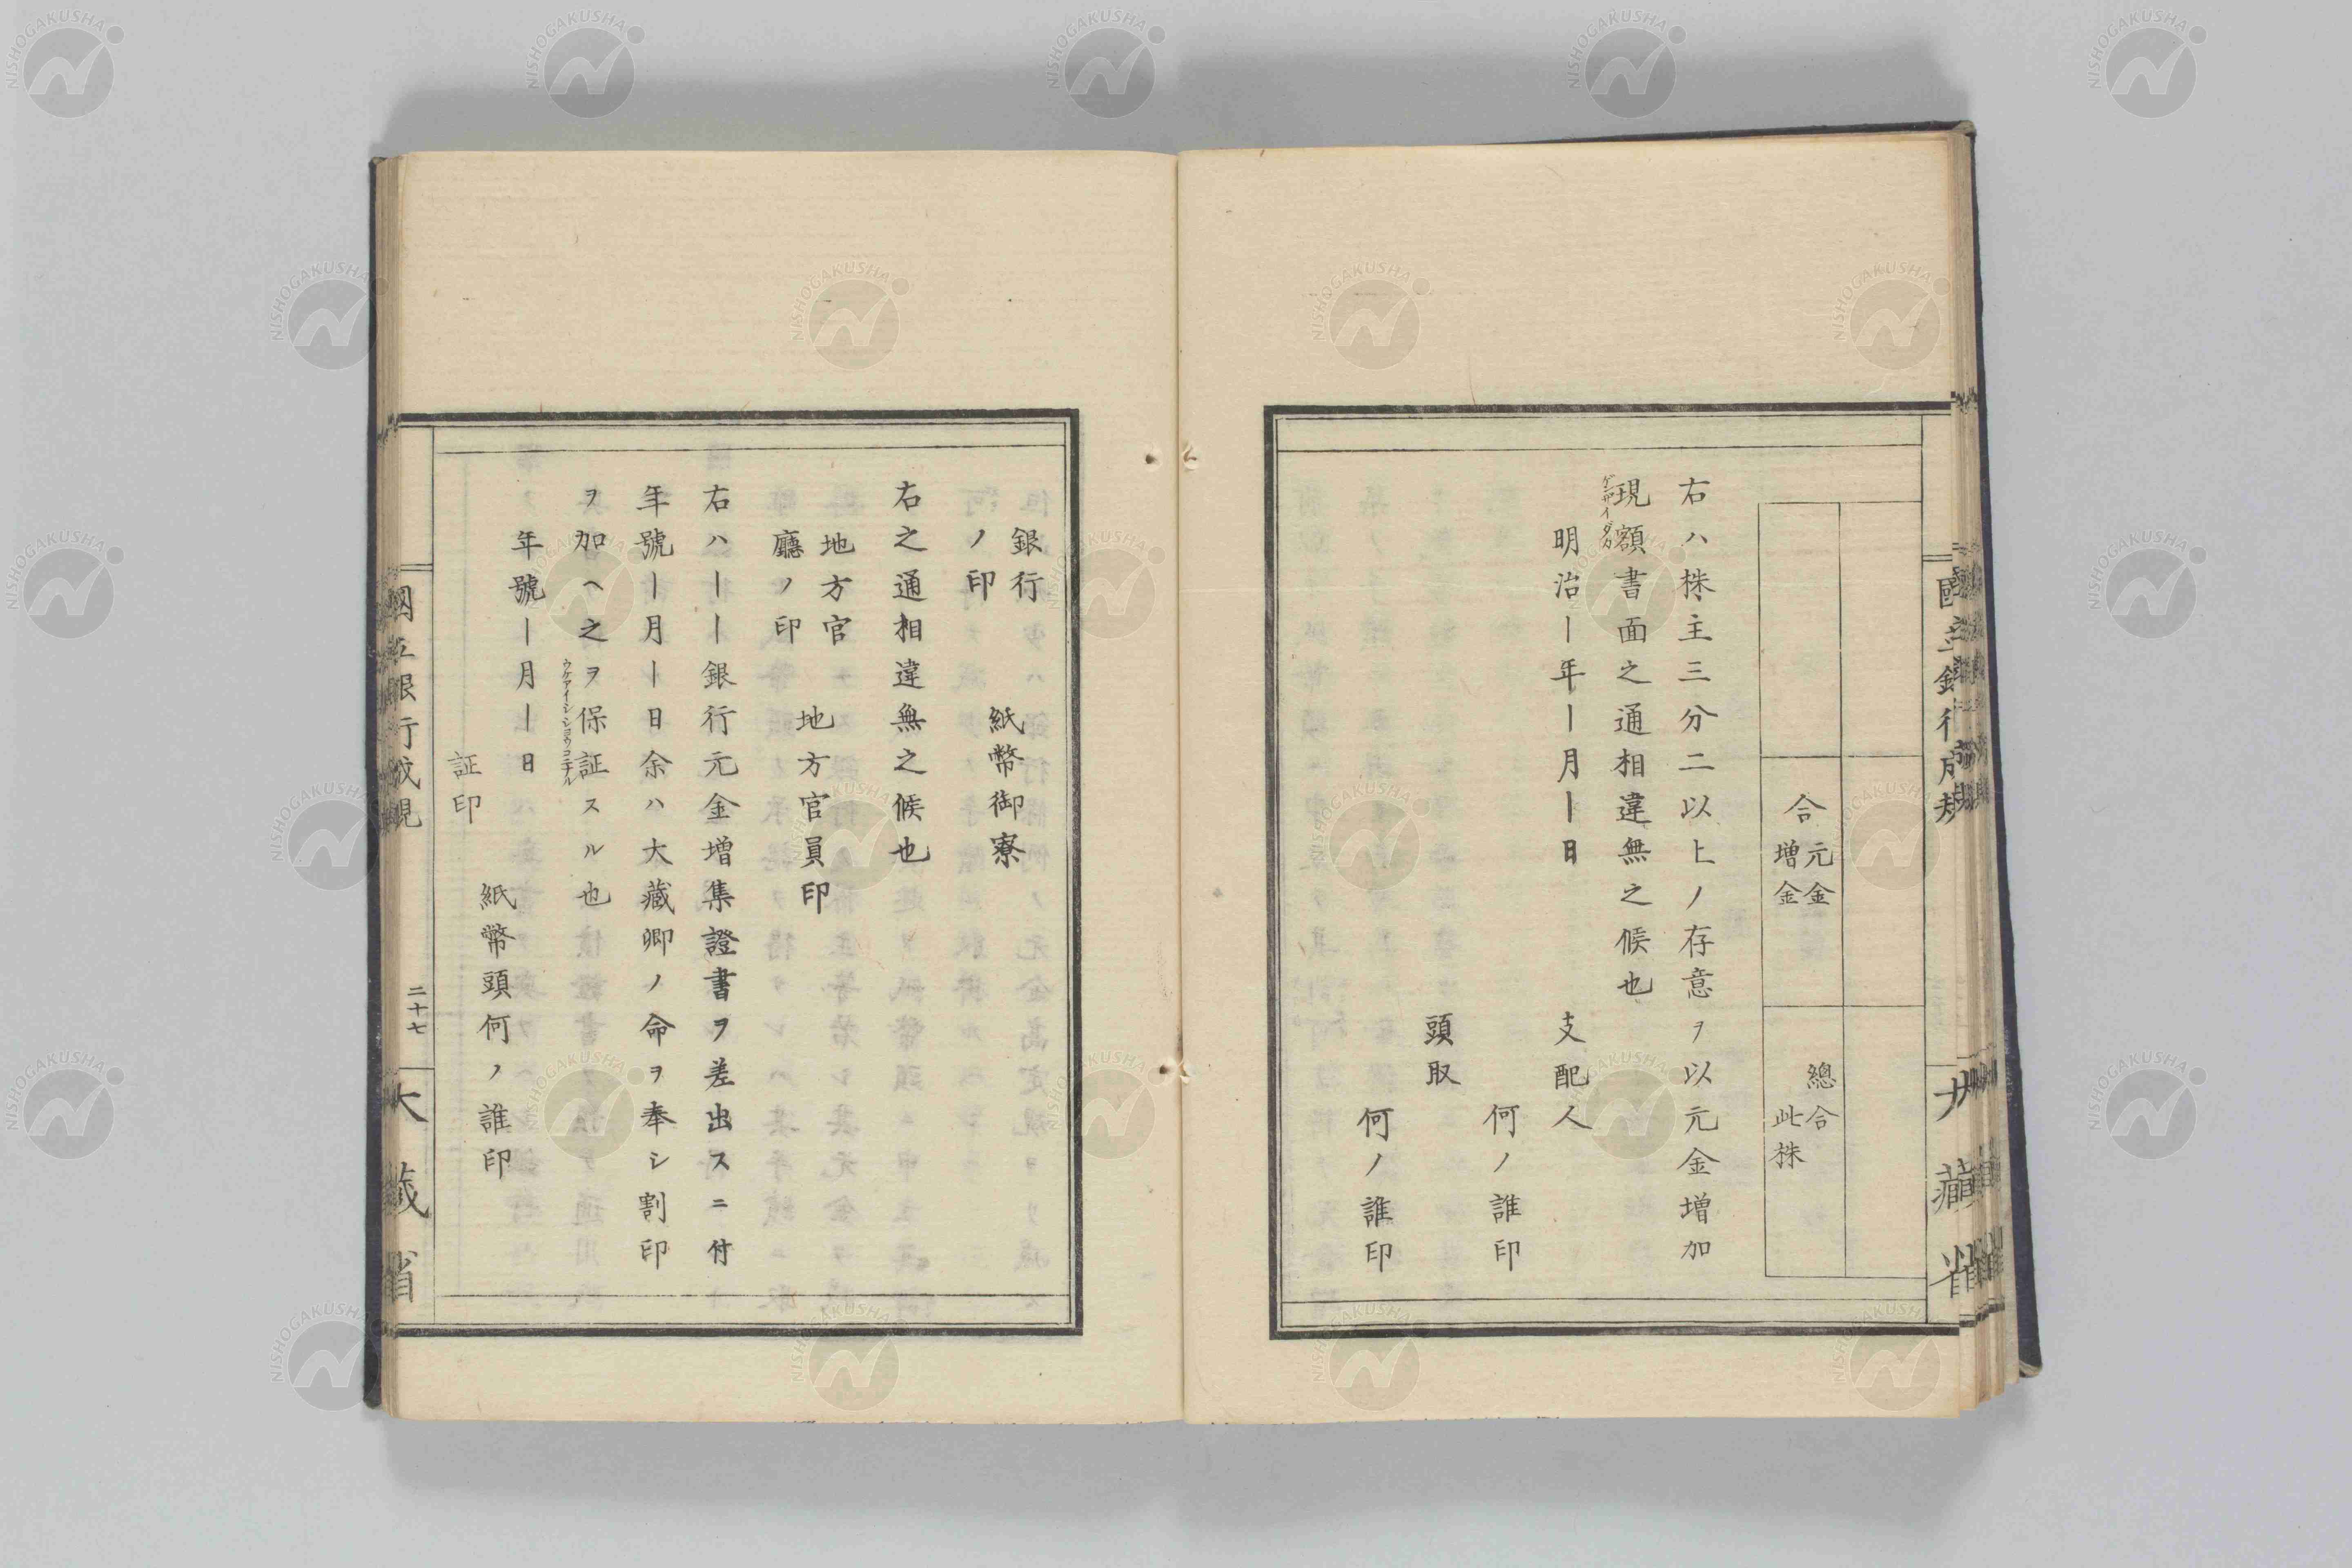 合 元金
増金
總合
此株
右ハ株主三分二以上ノ存意ヲ以元金増加
現額書面之通相違無之候也
ゲンザイダカ
明治ー年ー月ー日
支配人
何ノ誰印
頭取
何ノ誰印
銀行
ノ印
紙幣御寮
右之通相違無之候也
地方官
廳ノ印
地方官員印
右ハーーー銀行元金増集證書ヲ差出スニ付
年號ー月ー日余ハ大藏卿ノ命ヲ奉シ割印
ヲ加ヘ之ヲ保証スル也
ウケアイシショウコニナル
年號ー月ー日
紙幣頭何ノ誰印
証印
國立銀行成規
二十七
大藏省
NISHOGAKUSHA